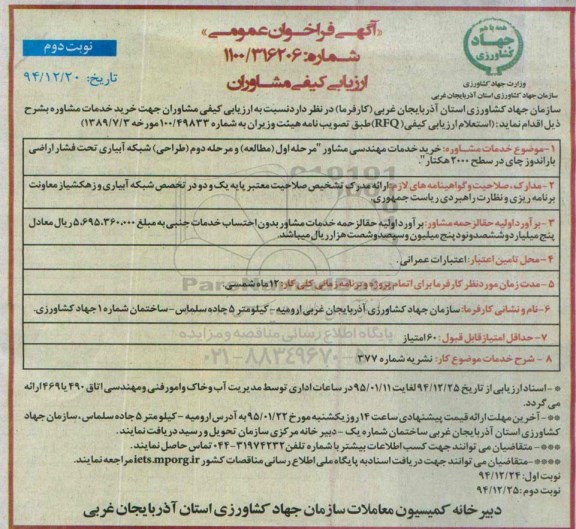 «آگهی فراخوان عمومی»
شماره: ۱۱۰۰/۳۱۶۲۰۶
ارزیابی کیفی مشاوران
نوبت دوم
تاریخ: ۹۴/۱۲/۲۰
همه با هم
جهاد
کشاورزی
وزارت جهاد کشاورزی
سازمان جهاد کشاورزی استان آذربایجان غربی
سازمان جهاد کشاورزی استان آذربایجان غربی (کارفرما) در نظر دارد نسبت به ارزیابی کیفی مشاوران جهت خرید خدمات مشاوره بشرح
ذیل اقدام نماید: (استعلام ارزیابی کیفی (RFQ) طبق تصویب نامه هیئت وزیران به شماره ۱۰۰/۴۹۸۳۳ مورخه ۱۳۸۹/۷/۳)
۱-موضوع خدمات مشاوره: خرید خدمات مهندسی مشاور "مرحله اول (مطالعه) و مرحله دوم (طراحی) شبکه آبیاری تحت فشار اراضی
باراندوز چای در سطح ۲۰۰۰ هکتار".
۲-مدارک، صلاحیت و گواهینامه های لازم: ارائه مدرک تشخیص صلاحیت معتبر پایه یک و دو در تخصص شبکه آبیاری و زهکشی از معاونت
برنامه ریزی و نظارت راهبردی ریاست جمهوری.
۳- برآورد اولیه حق الزحمه مشاور: برآورد اولیه حق الزحمه خدمات مشاور بدون احتساب خدمات جنبی به مبلغ ۵,۶۹۵,۳۶۰,۰۰۰ ریال معادل
پنج میلیارد و ششصد و نود و پنج میلیون و سیصد و شصت هزار ریال میباشد.
۴- محل تامین اعتبار: اعتبارات عمرانی.
۵- مدت زمان مورد نظر کارفرما برای اتمام پروژه و برنامه زمانی کلی کار: ۱۲ ماه شمسی.
۶-نام و نشانی کارفرما: سازمان جهاد کشاورزی آذربایجان غربی ارومیه - کیلومتر ۵ جاده سلماس - ساختمان شماره ۱ جهاد کشاورزی.
۷- حداقل امتیاز قابل قبول: ۶۰ امتیاز
۸- شرح خدمات موضوع کار: نشریه شماره ۳۷۷
*-اسناد ارزیابی از تاریخ ۹۴/۱۲/۲۵ لغایت ۹۵/۰۱/۱۱ در ساعات اداری توسط مدیریت آب و خاک و امور فنی و مهندسی اتاق ۴۹۰ یا ۴۶۹ ارائه
می گردد.
**- آخرین مهلت ارائه قیمت پیشنهادی ساعت ۱۴ روز یکشنبه مورخ ۹۵/۰۱/۲۲ به آدرس ارومیه - کیلومتر ۵ جاده سلماس، سازمان جهاد
کشاورزی استان آذربایجان غربی ساختمان شماره یک - دبیرخانه مرکزی سازمان تحویل و رسید دریافت نمایند.
***- متقاضیان می توانند جهت کسب اطلاعات بیشتر با شماره تلفن ۳۱۹۷۴۲۳۲-۰۴۴ تماس حاصل نمایند.
****- متقاضیان می توانند جهت دریافت اسناد به پایگاه ملی اطلاع رسانی مناقصات کشور iets.mporg.ir مراجعه نمایند.
نوبت اول: ۹۴/۱۲/۲۴
نوبت دوم: ۹۴/۱۲/۲۵
دبیرخانه کمیسیون معاملات سازمان جهاد کشاورزی استان آذربایجان غربی
پایگاه اطلاع رسانی مناقصه و مزایده
۰۲۱-۸۸۳۴۹۶۷۰